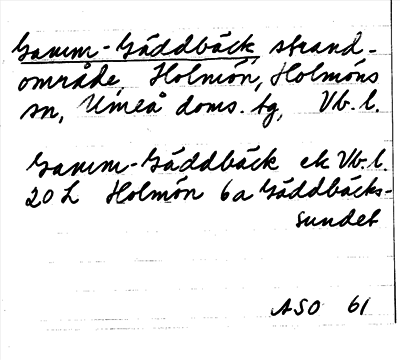 Gamm-Gäddbäck, strand-
område, Holmön, Holmöns
sn, Umeå doms. tg, Vb. l.
Gamm-Gäddbäck ek Vb. l.
20 L Holmön 6a Gäddbäcks-
sundet
ASO 61